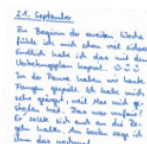 21. September
Zu Beginn der zweiten Woche
fühle ich mich schon viel sicherer.
Endlich habe ich das mit dem
kapiert. ☺☺☺
In der Pause haben wir heute
Fangen gespielt. Ich habe mich
sehr geärgert, weil Max mich ge-
hat. Das war unfair!
Er sollte sich auch an die Re-
geln halten. Am besten sage ich
ihm das